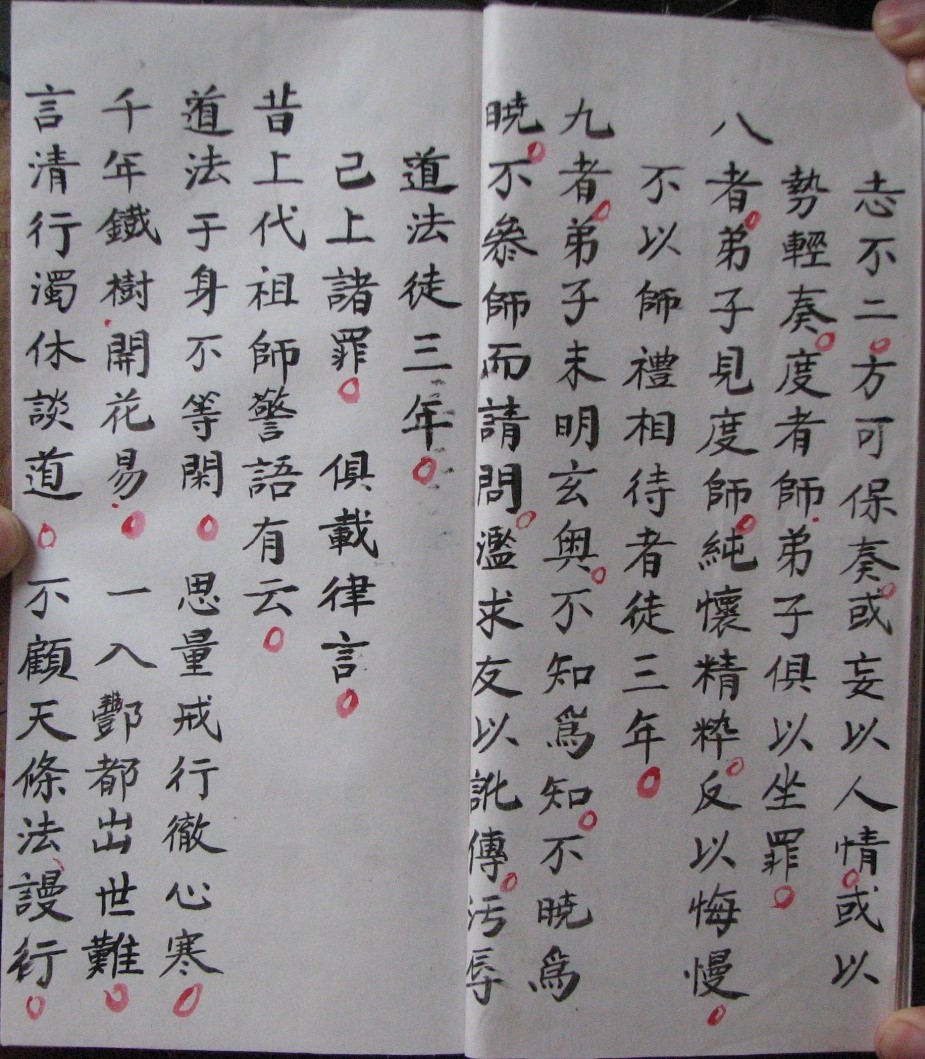 志不二。方可保奏。或妄以人情。或以
勢輕奏。度者師弟子俱以坐罪。
八者。弟子見度師。純懷精粹。反以悔慢。
不以師禮相待者徒三年。
九者。弟子未明玄奥。不知爲知。不暁爲
暁。不參師而請問。濫求友以訛傳。污辱
道法徒三年。
己上諸罪。俱載律言。
昔上代祖師警語有云。
道法于身不等閑。思量戒行徹心寒。
千年鐵樹開花易。一入酆都出世難。
言清行濁休談道。不顧天條法謾行。